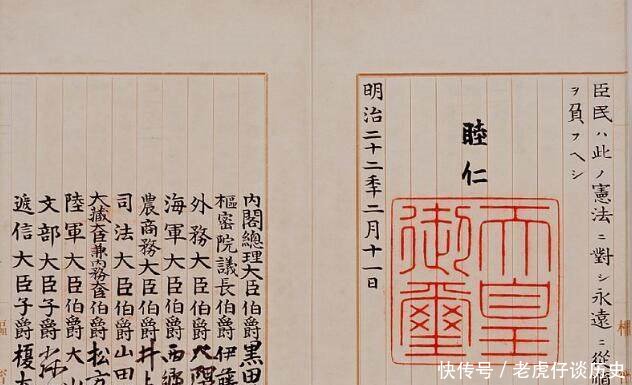 臣民ハ此ノ憲法ニ對シ永遠ニ從順
ヲ負フヘシ
睦仁
天皇御璽
明治二十二年二月十一日
內閣總理大臣伯爵黒田
樞密院議長伯爵伊藤
外務大臣伯爵大隈
海軍大臣伯爵西郷
農商務大臣伯爵井上
司法大臣伯爵山田
大藏大臣兼內務大臣伯爵松方
陸軍大臣伯爵大山
文部大臣子爵森
遞信大臣子爵榎本
快传号/老虎仔谈历史